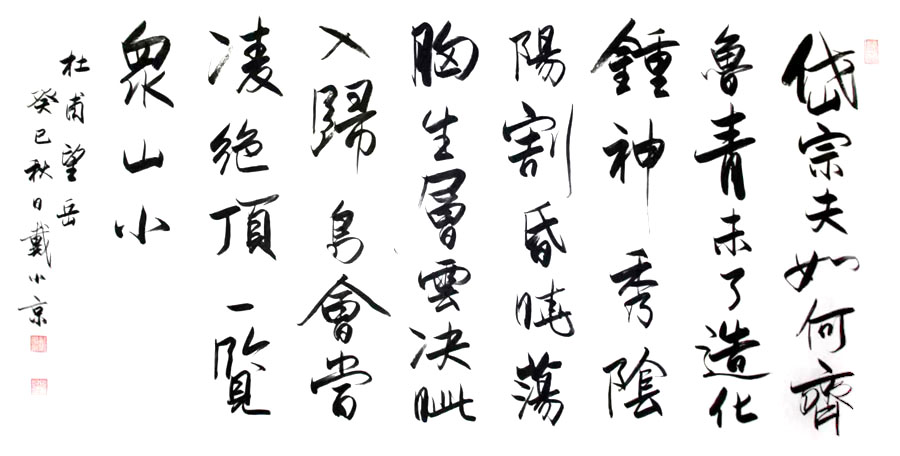 岱宗夫如何齊
魯青未了造化
鍾神秀陰
陽割昏曉蕩
胸生層雲决眦
入歸鳥會當
凌絕頂一覽
衆山小
杜甫望岳
癸巳秋日戴小京